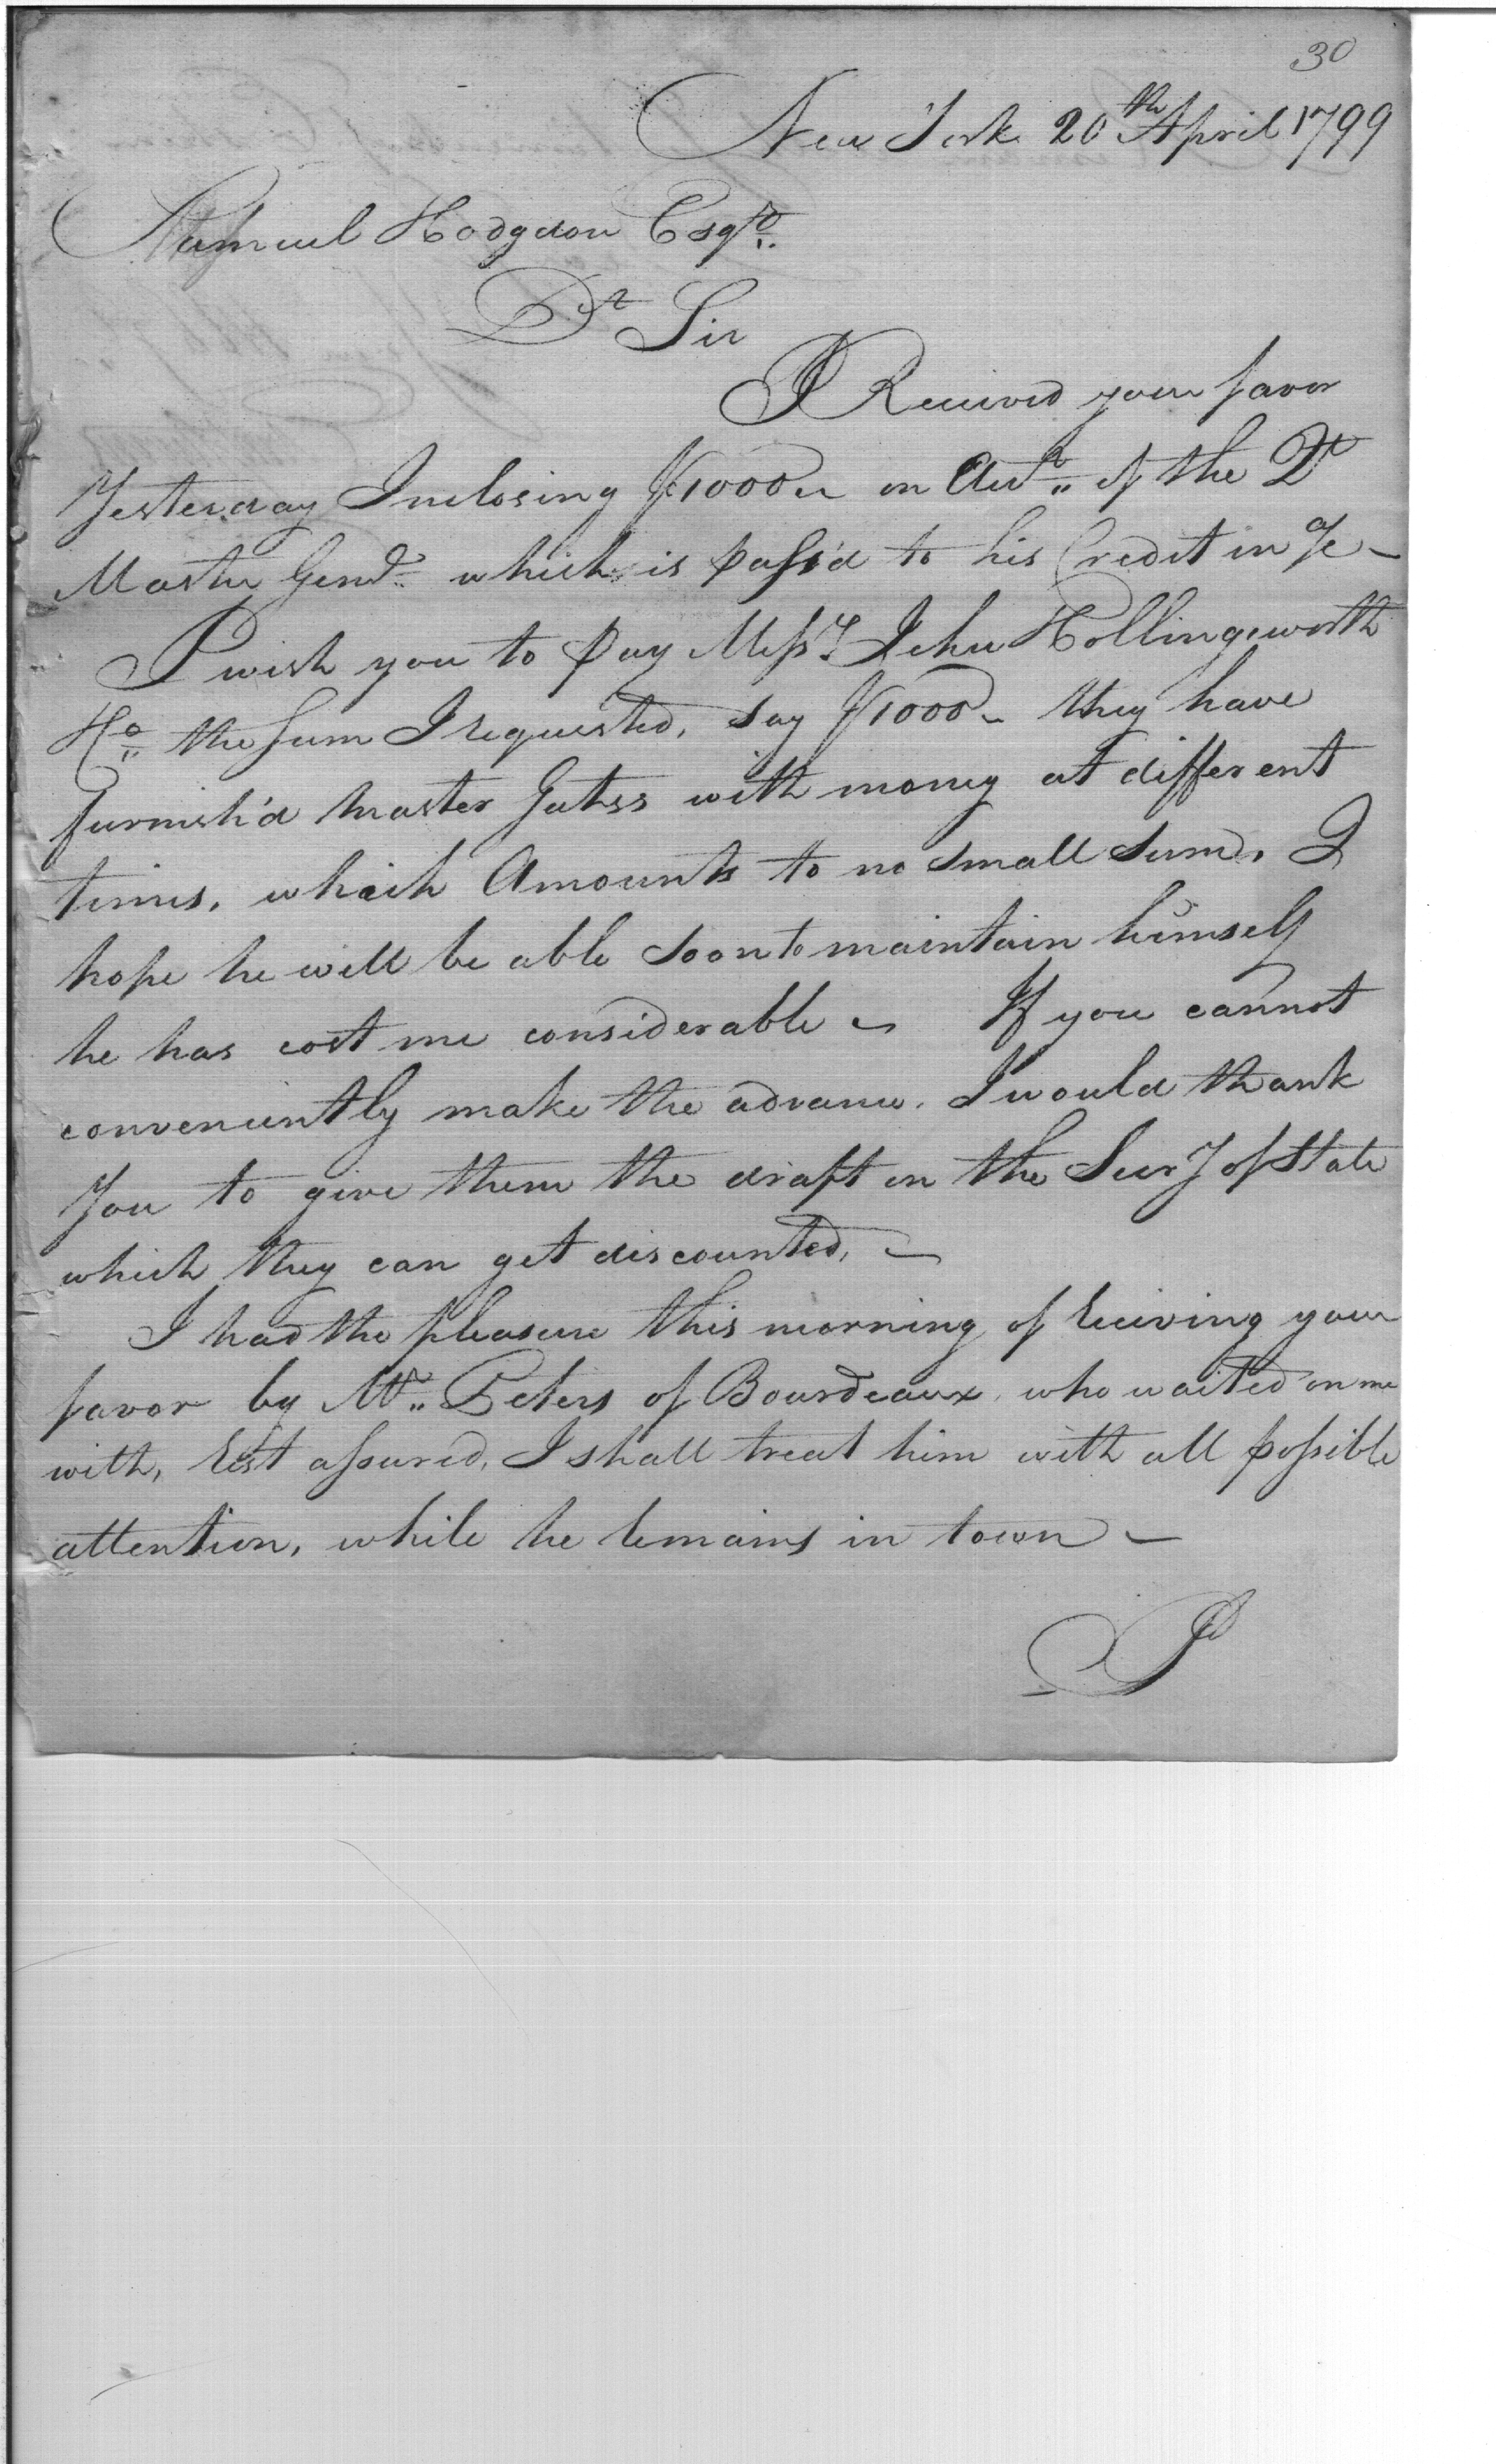 30
New York 20th April 1799
Samuel Hodgdon Esqr.
Dr Sir
I Received your favor
Yesterday Inclosing $1000 on Acct. of the Qr
Master Genl. which is pass'd to his Credit in a/c —
I wish you to pay Messrs. Jehu Hollingsworth
& Co. the sum I requested, say $1000 they have
furnish'd Master Gates with money at different
times, which Amounts to no small sum. I
hope he will be able soon to maintain himself
he has cost me considerable — If you cannot
conveniently make the advance. I would thank
You to give them the draft on the Secry of State
which they can get discounted. —
I had the pleasure this morning of receiving your
favor by Mr. Peters of Bourdeaux who waited on me
with, rest assured, I shall treat him with all possible
attention, while he remains in town —